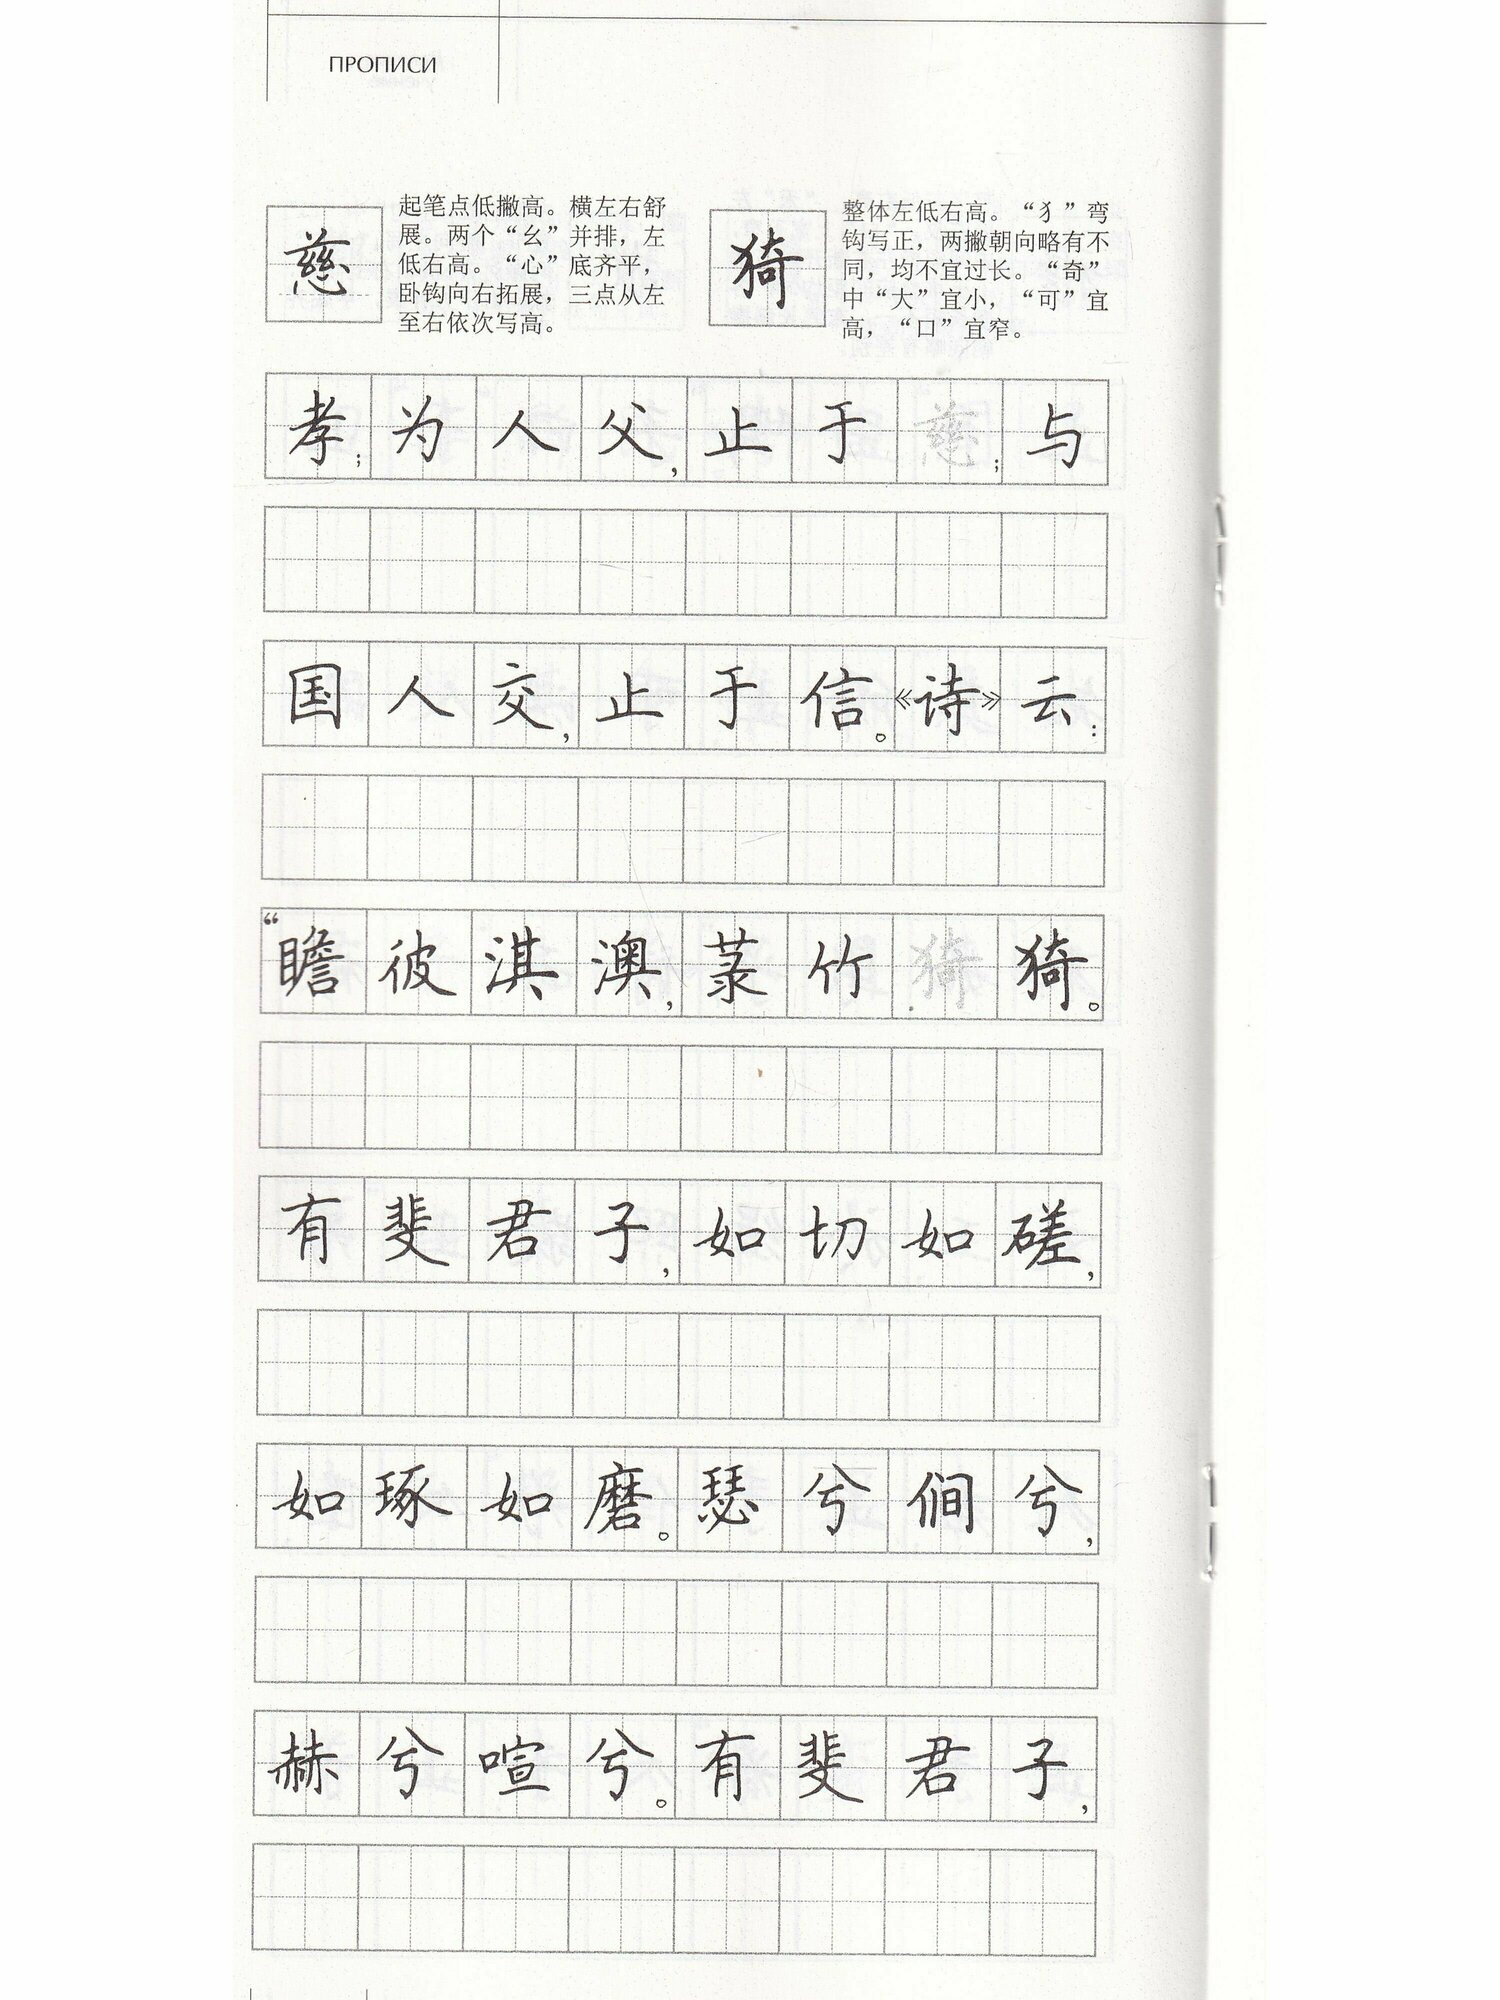 ПРОПИСИ
慈
起笔点低撇高。横左右舒
展。两个“幺”并排，左
低右高。“心”底齐平，
卧钩向右拓展，三点从左
至右依次写高。
猗
整体左低右高。“犭”弯
钩写正，两撇朝向略有不
同，均不宜过长。“奇”
中“大”宜小，“可”宜
高，“口”宜窄。
孝；为人父，止于慈；与
国人交，止于信。《诗》云：
“瞻彼淇澳，菉竹猗猗。
有斐君子，如切如磋，
如琢如磨。瑟兮僩兮，
赫兮喧兮。有斐君子，